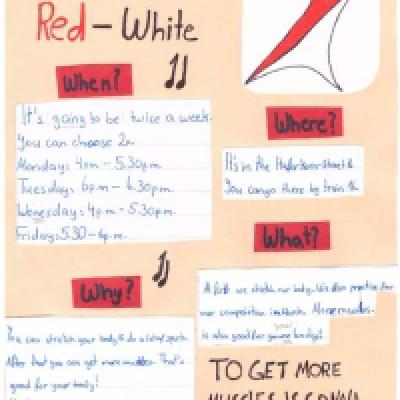 Red - White
When?
It's going to be twice a week.
You can choose 2.
Monday: 4pm - 5.30pm.
Tuesday: 6pm - 6.30pm.
Wenesday: 4pm - 5.30pm.
Friday: 5.30 - 6pm.
Where?
It's in the
You can go there by train 16.
What?
At first we stretch our body. We also practice for
our competition
is also good for your body!
Why?
You can stretch your body
After that you can get more That's
good for your body!
TO GET MORE
MUSCLES IS GONNA